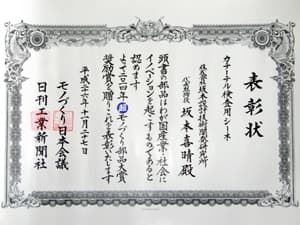 表彰状
カテーテル検査用シース
株式会社坂本設計技術開発研究所
代表取締役
坂本喜晴殿
頭書の部品はわが国産業・社会に
イノベーションを起こすものであると
認めます
よって二〇一四年超モノづくり部品大賞
奨励賞を贈りこれを表彰いたします
平成二十六年十一月二十七日
モノづくり日本会議
日刊工業新聞社